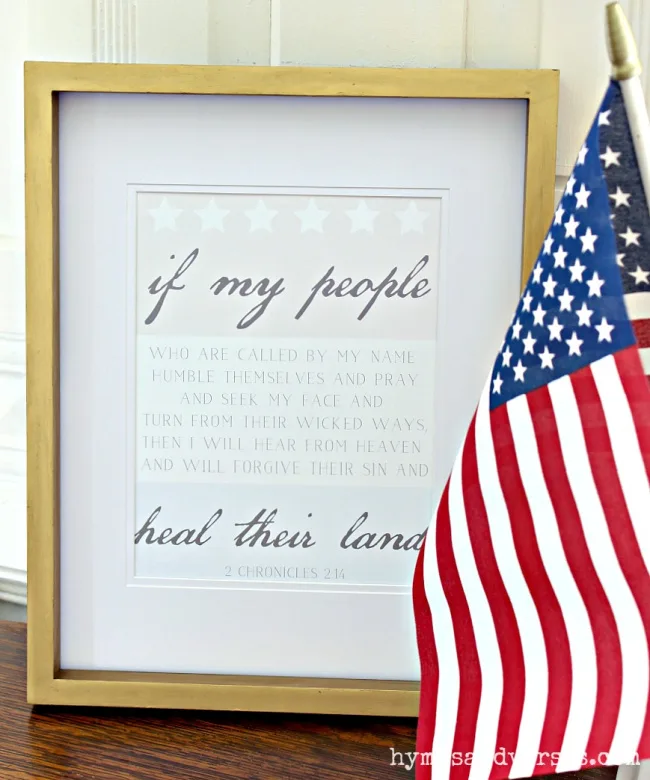 if my people
WHO ARE CALLED BY MY NAME
HUMBLE THEMSELVES AND PRAY
AND SEEK MY FACE AND
TURN FROM THEIR WICKED WAYS,
THEN I WILL HEAR FROM HEAVEN
AND WILL FORGIVE THEIR SIN AND
heal their land
2 CHRONICLES 2:14
hymnsandverses.com